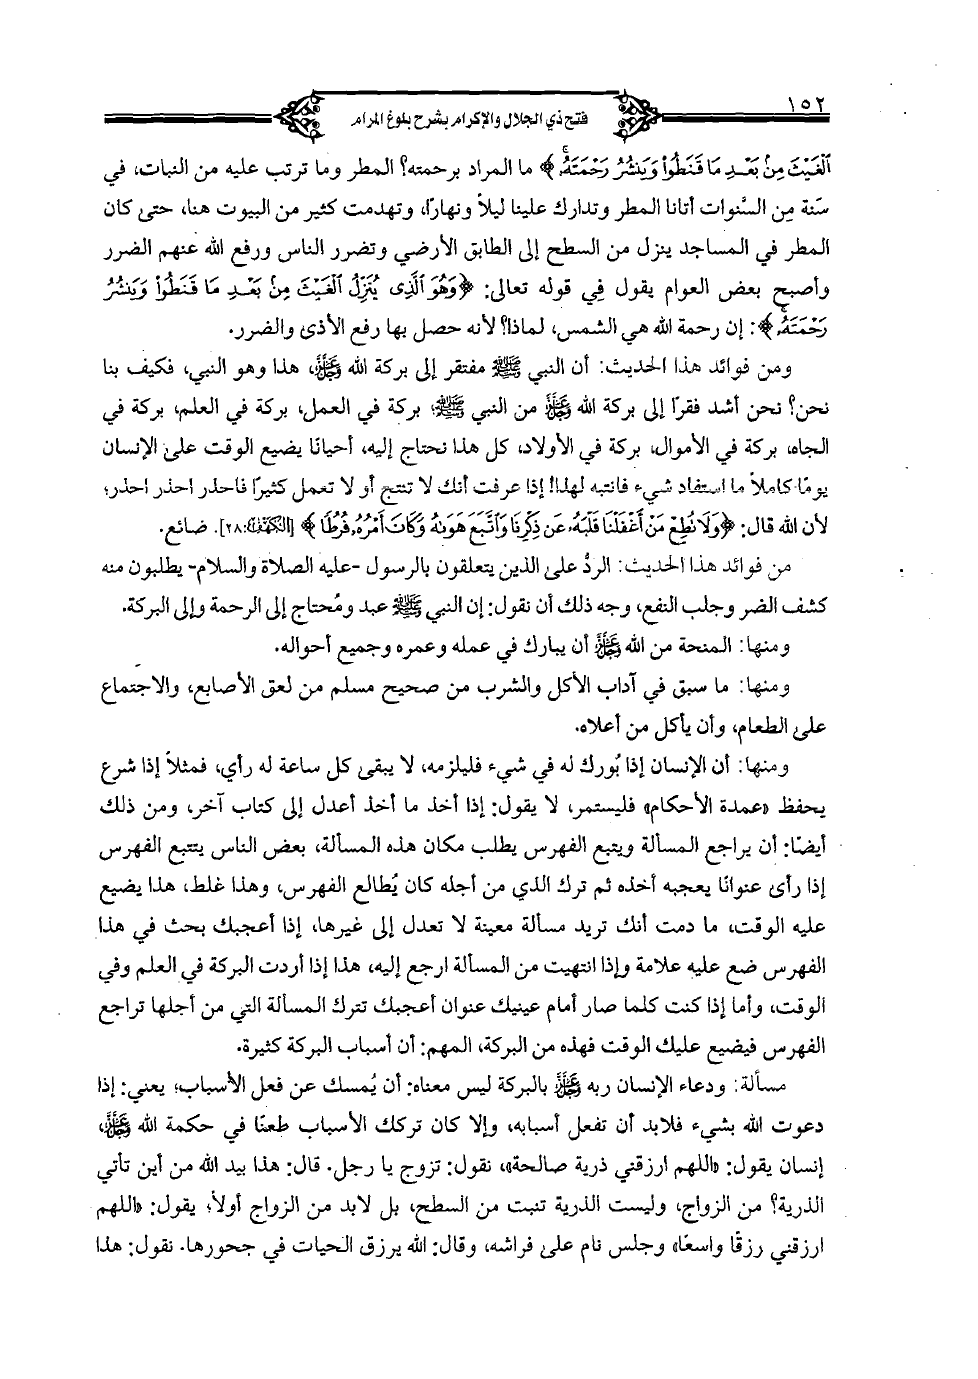 ١٥٢
فتح ذي الجلال والإكرام بشرح بلوغ المرام
ٱلۡغَيۡثَ مِنۢ بَعۡدِ مَا قَنَطُواْ وَيَنشُرُ رَحۡمَتَهُۥۚ﴾ ما المراد برحمته؟ المطر وما ترتب عليه من النبات، في
سَنة مِن السَّنوات أتانا المطر وتدارك علينا ليلاً ونهارًا، وتهدمت كثير من البيوت هنا، حتى كان
المطر في المساجد ينزل من السطح إلى الطابق الأرضي وتضرر الناس ورفع الله عنهم الضرر
وأصبح بعض العوام يقول فِي قوله تعالى: ﴿وَهُوَ ٱلَّذِى يُنَزِّلُ ٱلۡغَيۡثَ مِنۢ بَعۡدِ مَا قَنَطُواْ وَيَنشُرُ
رَحۡمَتَهُۥۚ﴾: إن رحمة الله هي الشمس، لماذا؟ لأنه حصل بها رفع الأذى والضرر.
ومن فوائد هذا الحديث: أن النبي ﷺ مفتقر إلى بركة الله ﷻ، هذا وهو النبي، فكيف بنا
نحن؟ نحن أشد فقرًا إلى بركة الله ﷻ من النبي ﷺ؛ بركة في العمل، بركة في العلم، بركة في
الجاه، بركة في الأموال، بركة في الأولاد، كل هذا نحتاج إليه، أحيانًا يضيع الوقت على الإنسان
يومًا كاملاً ما استفاد شيء فانتبه لهذا! إذا عرفت أنك لا تنتج أو لا تعمل كثيرًا فاحذر احذر احذر؛
لأن الله قال: ﴿وَلَا نُطِعۡ مَنۡ أَغۡفَلۡنَا قَلۡبَهُۥ عَن ذِكۡرِنَا وَٱتَّبَعَ هَوَىٰهُ وَكَانَ أَمۡرُهُۥ فُرُطٗا﴾ [الكهف: ٢٨]. ضائع.
من فوائد هذا الحديث: الردُّ على الذين يتعلقون بالرسول -عليه الصلاة والسلام- يطلبون منه
كشف الضر وجلب النفع، وجه ذلك أن نقول: إن النبي ﷺ عبد ومُحتاج إلى الرحمة وإلى البركة.
ومنها: المنحة من الله ﷻ أن يبارك في عمله وعمره وجميع أحواله.
ومنها: ما سبق في آداب الأكل والشرب من صحيح مسلم من لعق الأصابع، والاجتماع
على الطعام، وأن يأكل من أعلاه.
ومنها: أن الإنسان إذا بُورك له في شيء فليلزمه، لا يبقى كل ساعة له رأي، فمثلاً إذا شرع
يحفظ «عمدة الأحكام» فليستمر، لا يقول: إذا أخذ ما أخذ أعدل إلى كتاب آخر، ومن ذلك
أيضًا: أن يراجع المسألة ويتبع الفهرس يطلب مكان هذه المسألة، بعض الناس يتتبع الفهرس
إذا رأى عنوانًا يعجبه أخذه ثم ترك الذي من أجله كان يُطالع الفهرس، وهذا غلط، هذا يضيع
عليه الوقت، ما دمت أنك تريد مسألة معينة لا تعدل إلى غيرها، إذا أعجبك بحث في هذا
الفهرس ضع عليه علامة وإذا انتهيت من المسألة ارجع إليه، هذا إذا أردت البركة في العلم وفي
الوقت، وأما إذا كنت كلما صار أمام عينيك عنوان أعجبك تترك المسألة التي من أجلها تراجع
الفهرس فيضيع عليك الوقت فهذه من البركة، المهم: أن أسباب البركة كثيرة.
مسألة: ودعاء الإنسان ربه ﷻ بالبركة ليس معناه: أن يُمسك عن فعل الأسباب؛ يعني: إذا
دعوت الله بشيء فلابد أن تفعل أسبابه، وإلا كان تركك الأسباب طعنًا في حكمة الله ﷻ،
إنسان يقول: «اللهم ارزقني ذرية صالحة»، نقول: تزوج يا رجل. قال: هذا بيد الله من أين تأتي
الذرية؟ من الزواج، وليست الذرية تنبت من السطح، بل لابد من الزواج أولاً؛ يقول: «اللهم
ارزقني رزقًا واسعًا» وجلس نام على فراشه، وقال: الله يرزق الحيات في جحورها. نقول: هذا